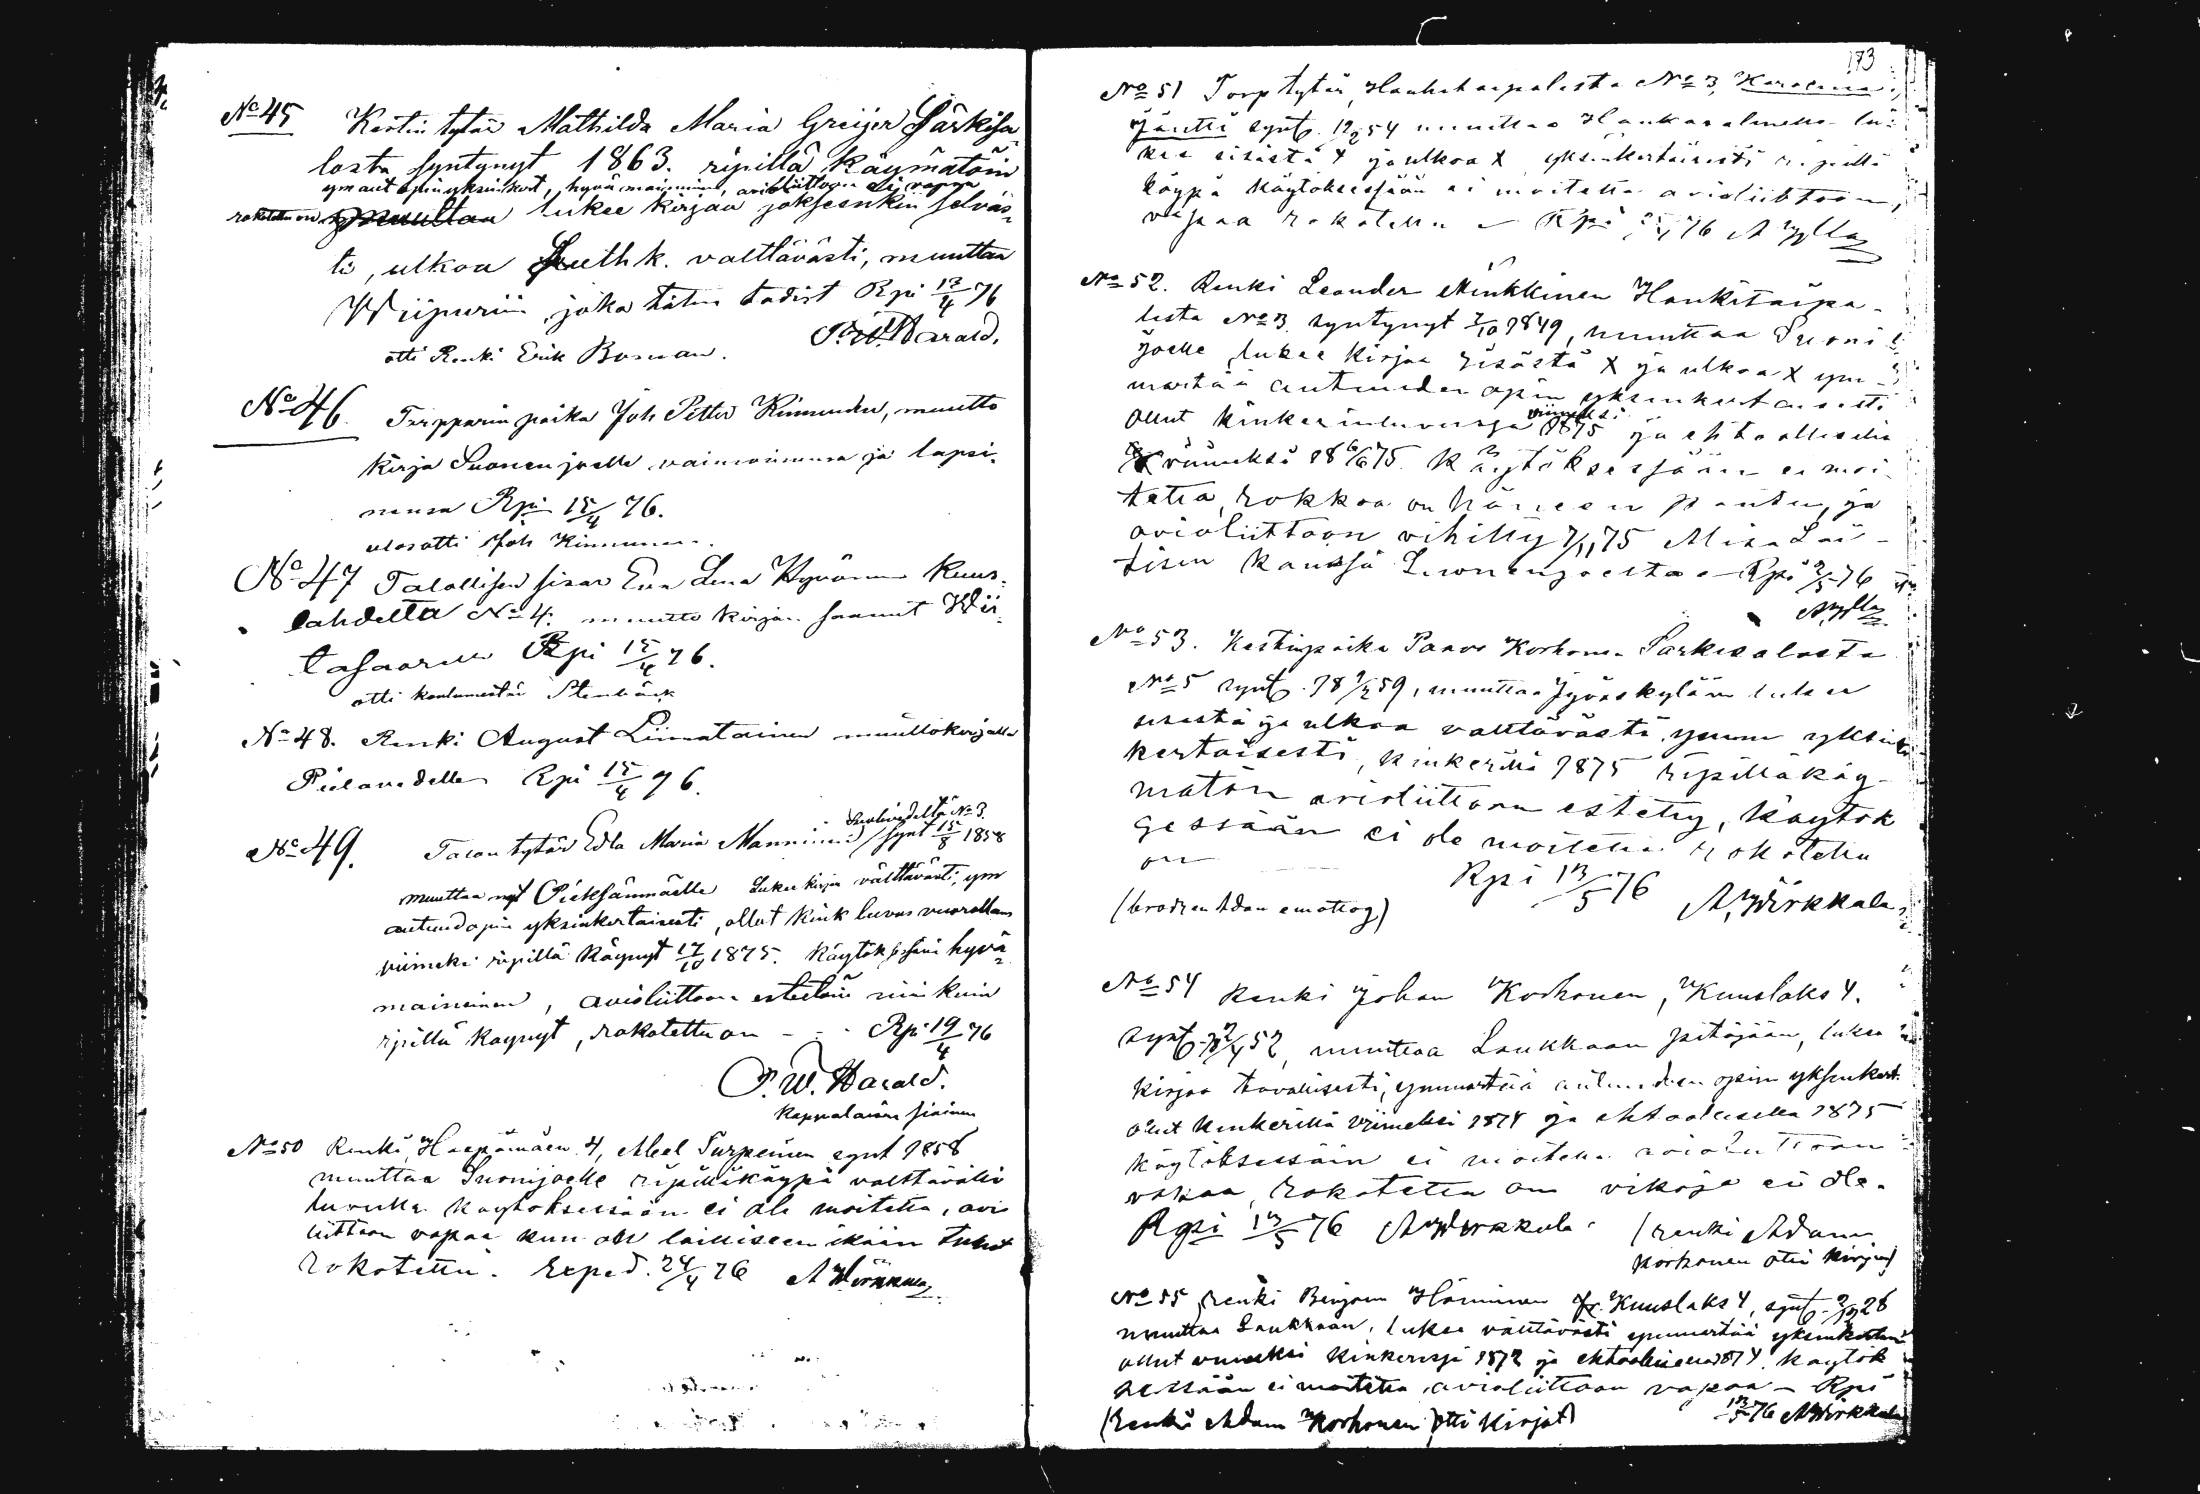 No 45 Kestin tytär Mathilda Maria Greijer Särkisa-
losta syntynyt 1863. ripillä käymätöin
ym aut opin yksinkert, hyvä maininen, avioliittoon vapaa
rokotettu on lukee kirjaa joksenkin selväs-
ti, ulkoa Luth k. valttävästi, muuttaa
Wiipuriin, joka täten todist Rpi 13/4 76
P. W. Harald.
otti Renki Erik Bosman.
No 46. Torpparin poika Joh Petter Kinnunen, muutto
kirja Suonenjoelle vaimoinensa ja lapsi-
nensa Rpi 15/4 76.
ulosotti Joh Kinnunen.
No 47 Talollisen sisar Eva Lena Hyvönen Kuus-
lahdelta No 4. muutto kirjan saanut Wii-
tasaarelle Rpi 15/4 76.
otti koulumestar Stenbäck
No 48. Renki August Liimatainen muuttokirjalla
Pielavedelle Rpi 15/4 76.
No 3.
No 49. Talon tytär Edla Maria Manninen synt 15/8 1858
muuttaa nyt Pieksänmäelle Lukee kirjaa välttävästi, ym
autuud opin yksinkertaisesti, ollut kink luvus vuorollans
viimeksi ripillä käynyt 17/10 1875. Käytöksessäni hyvä-
maineinen, avioliittoon esteetöin niinkuin
ripillä käynyt, rokotettu on - - Rpi 19/4 76
P. W. Harald.
Kappalaisen siainen
No 50 Renki, Haapamäen 4, Abel Turpeinen synt 1858
muuttaa Suonijoelle ripilläkäypä valttävällä
luvulla käytöksessään ei ole moitetta, avio
liittoon vapaa kun on lailliseen ikään tullut
rokotettu. Exped. 24/4 76 A Wirkkala
173
No 51 Torp tytär, Hankataipalesta No 3, Karolina
Jäntti synt. 12/2 54 muuttaa Hankasalmelle lu-
kee sisästä X ja ulkoa X yksinkertaisesti ripillä
käypä Käytöksessään ei moitetta avioliittoon,
vapaa rokotettu - Rpi 76
No 52. Renki Leander Minkkinen Hankitaipa-
lesta No 3 syntynyt 7/10 1849, muuttaa Suoni
joelle, lukee kirjaa sisästä X ja ulkoa X ym-
märtää autuuden opin yksinkertaisesti
viimeksi
ollut kinkerinluvussa 1875 ja ehtoollisella
viimeksi 18 6/6 75. Käytöksessään ei moi-
tetta, rokkoa on häneen pantu, ja
avioliittoon vihitty 7/11 75 Miina Lai-
tisen kanssa Suonenjoelta - Rpi 2/5 76
No 53. Kestinpoika Paavo Korhonen Särkisalosta
No 5 synt. 18 9/2 59, muuttaa Jyväskylään lukee
sisästä ja ulkoa valttävästi, ymm yksin
kertaisesti, kinkerillä 1875 ripilläkäy-
mätön avioliittoon estetty, käytök
sessään ei ole moitetta rokotettu
on
Rpi 13/5 76 A, Wirkkala
(brodren Adam emottog)
No 54 Renki Johan Korhonen, Kuuslaks 4.
synt. 52, muuttaa Laukkaan pitäjään, lukee
kirjaa tavallisesti, ymmärtää autuuden opin yksinkert.
ollut kinkerillä viimeksi 1874 ja ehtoollisella 1875
käytöksessään ei moitetta avioliittoon
vapaa, rokotettu on vikoja ei ole.
Rpi 13/5 76 A Wirkkala (renki Adam
Korhonen otti kirjan)
No 55 renki Benjam Hänninen fr. Kuuslaks 4, synt. 28
muuttaa Laukkaan, lukee välttävästi ymmärtää yksinkertai
ollut viimeksi kinkerissä 1872 ja ehtoollisella 1874. käytök
sessään ei moitetta avioliittoon vapaa - Rpi
13/5 76 A Wirkkala
(Renki Adam Korhonen otti kirjat)